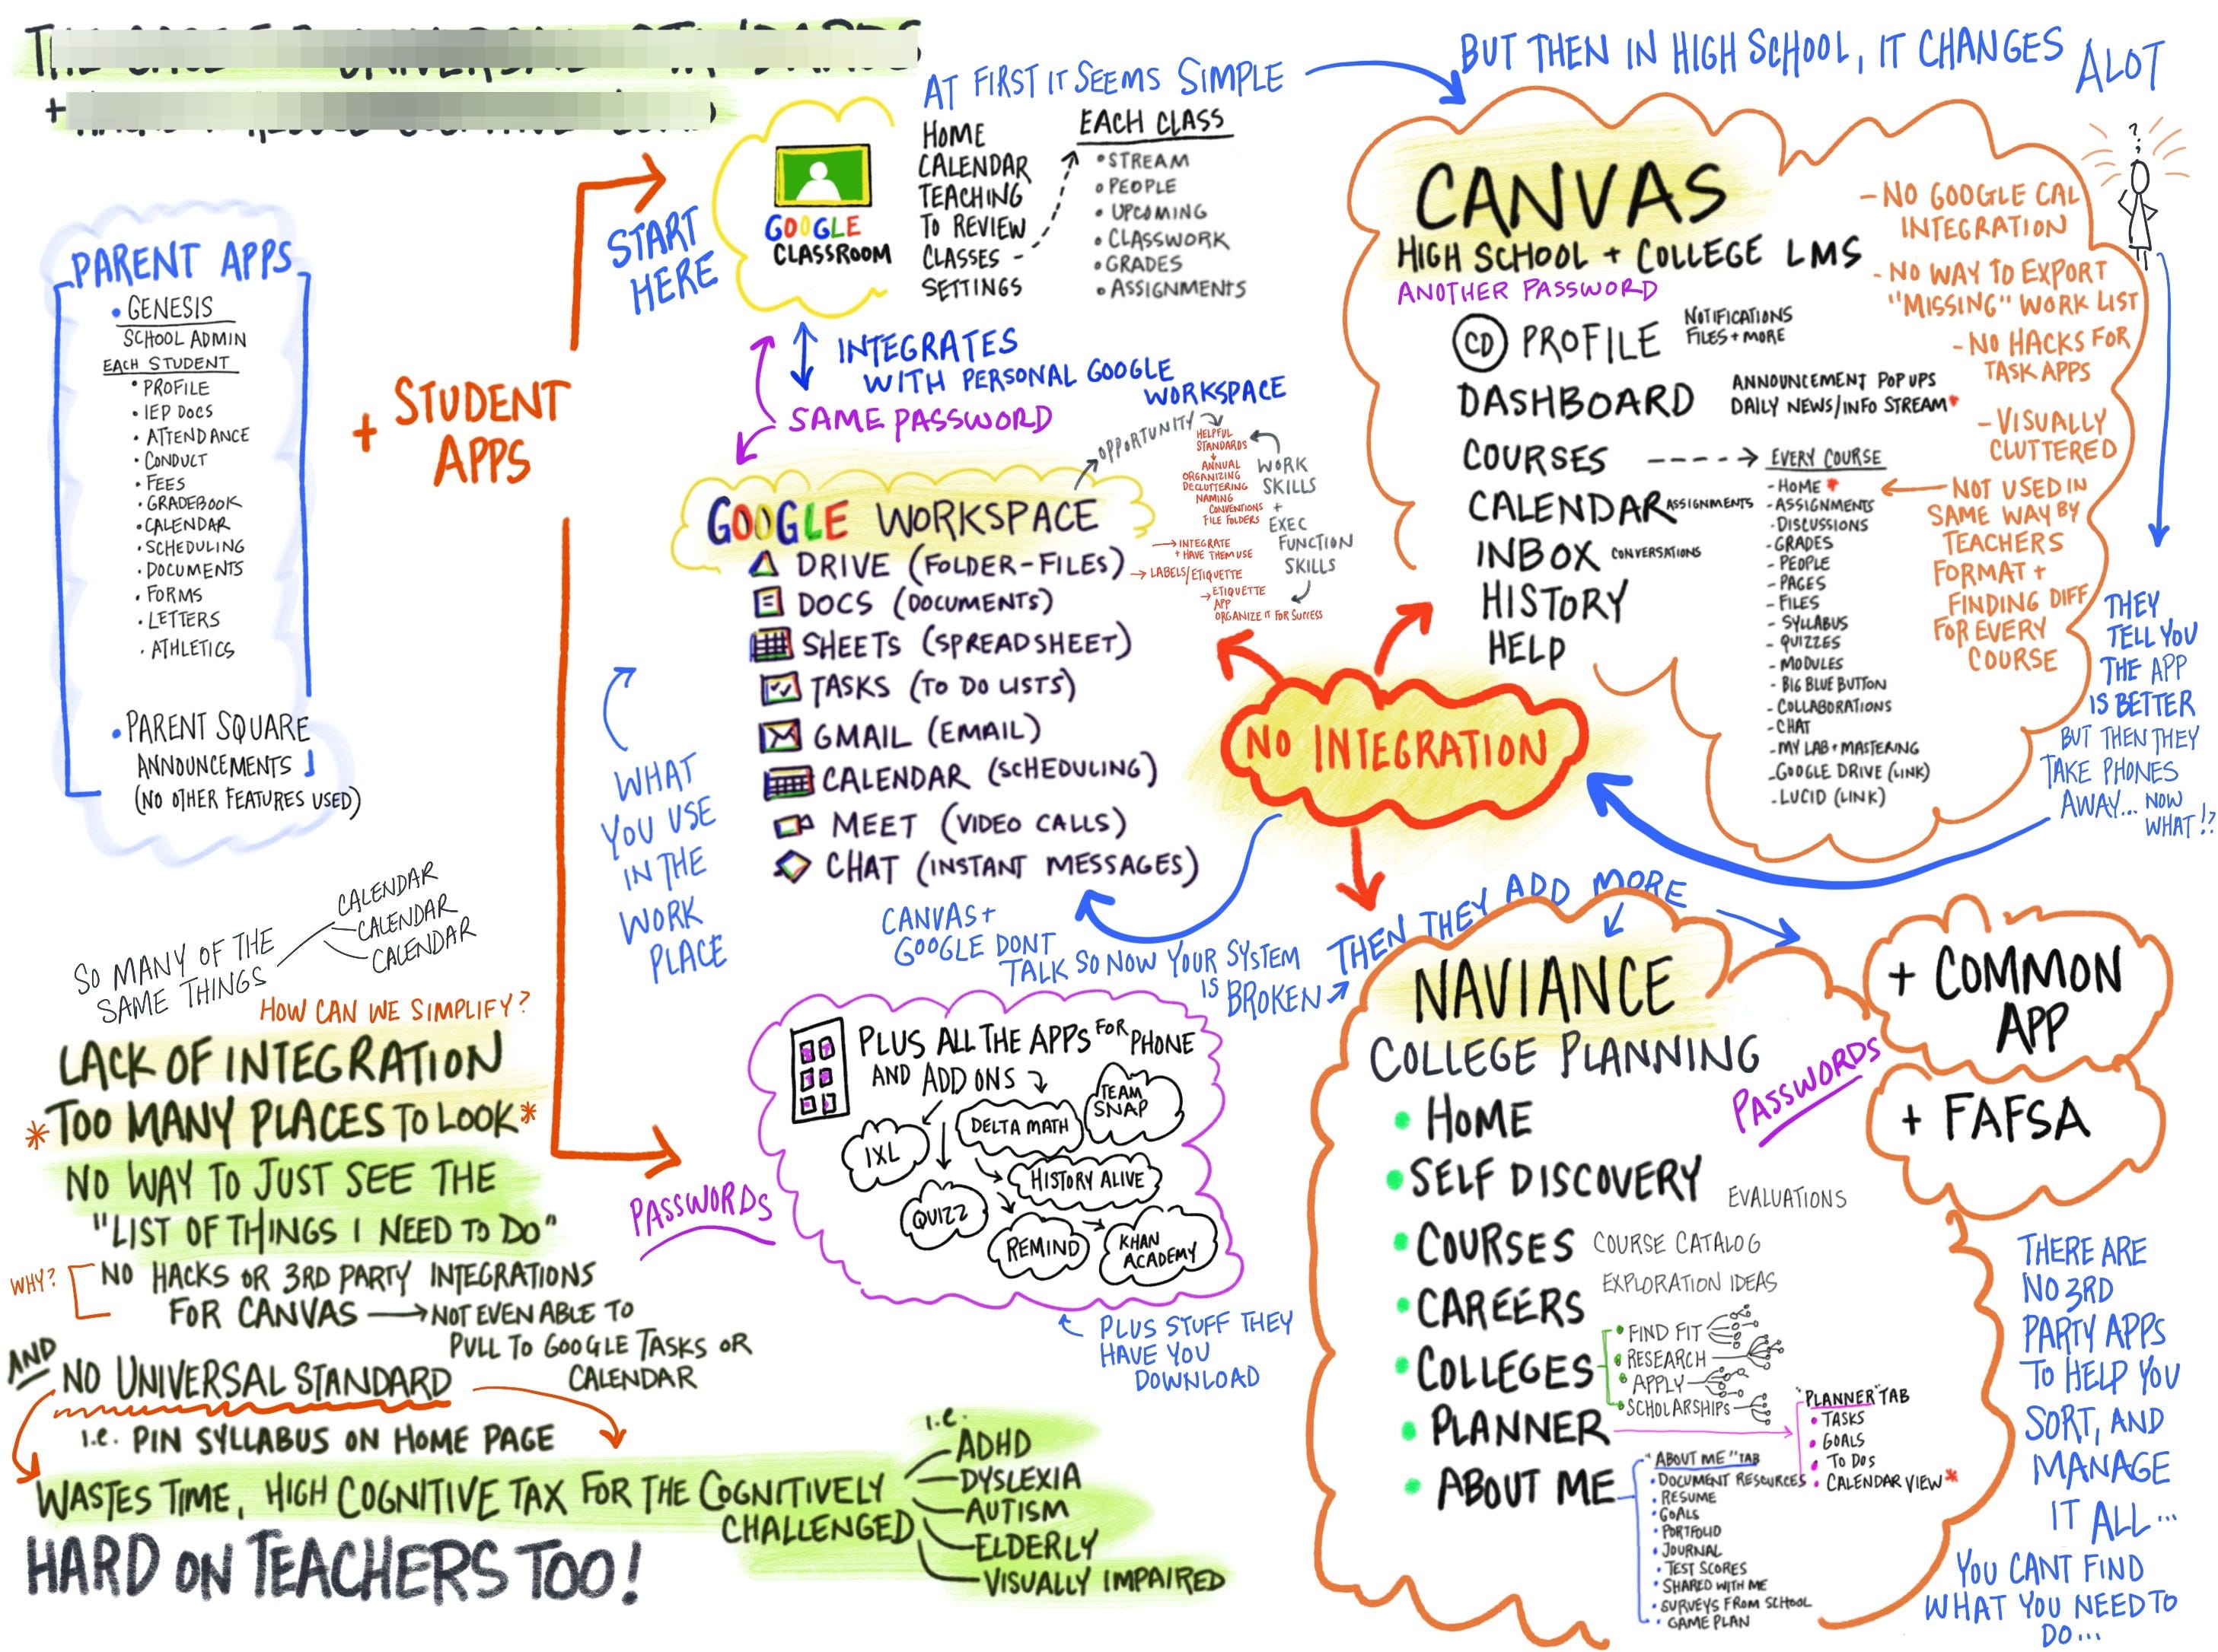 +
PARENT APPS
• GENESIS
SCHOOL ADMIN
EACH STUDENT
• PROFILE
• IEP DOCS
• ATTENDANCE
• CONDUCT
• FEES
• GRADEBOOK
• CALENDAR
• SCHEDULING
• DOCUMENTS
• FORMS
• LETTERS
• ATHLETICS
• PARENT SQUARE
ANNOUNCEMENTS
(NO OTHER FEATURES USED)
+ STUDENT
APPS
START
HERE
AT FIRST IT SEEMS SIMPLE
GOOGLE
CLASSROOM
HOME
CALENDAR
TEACHING
TO REVIEW
CLASSES -
SETTINGS
EACH CLASS
• STREAM
• PEOPLE
• UPCOMING
• CLASSWORK
• GRADES
• ASSIGNMENTS
INTEGRATES
WITH PERSONAL GOOGLE
WORKSPACE
SAME PASSWORD
GOOGLE WORKSPACE
DRIVE (FOLDER-FILES)
DOCS (DOCUMENTS)
SHEETS (SPREADSHEET)
TASKS (TO DO LISTS)
GMAIL (EMAIL)
CALENDAR (SCHEDULING)
MEET (VIDEO CALLS)
CHAT (INSTANT MESSAGES)
OPPORTUNITY
HELPFUL
STANDARDS
ANNUAL
ORGANIZING
DECLUTTERING
NAMING
CONVENTIONS
FILE FOLDERS
WORK
SKILLS
+
EXEC
FUNCTION
SKILLS
INTEGRATE
+ HAVE THEM USE
LABELS/ETIQUETTE
ETIQUETTE
APP
ORGANIZE IT FOR SUCCESS
WHAT
YOU USE
IN THE
WORK
PLACE
BUT THEN IN HIGH SCHOOL, IT CHANGES ALOT
CANVAS
HIGH SCHOOL + COLLEGE LMS
ANOTHER PASSWORD
CD PROFILE
NOTIFICATIONS
FILES + MORE
DASHBOARD
ANNOUNCEMENT POP UPS
DAILY NEWS/INFO STREAM*
COURSES
CALENDAR ASSIGNMENTS
INBOX CONVERSATIONS
HISTORY
HELP
EVERY COURSE
- HOME *
- ASSIGNMENTS
- DISCUSSIONS
- GRADES
- PEOPLE
- PAGES
- FILES
- SYLLABUS
- QUIZZES
- MODULES
- BIG BLUE BUTTON
- COLLABORATIONS
- CHAT
- MY LAB + MASTERING
- GOOGLE DRIVE (LINK)
- LUCID (LINK)
- NO GOOGLE CAL
INTEGRATION
- NO WAY TO EXPORT
"MISSING" WORK LIST
- NO HACKS FOR
TASK APPS
- VISUALLY
CLUTTERED
NOT USED IN
SAME WAY BY
TEACHERS
FORMAT +
FINDING DIFF
FOR EVERY
COURSE
? ? ?
THEY
TELL YOU
THE APP
IS BETTER
BUT THEN THEY
TAKE PHONES
AWAY... NOW
WHAT!?
NO INTEGRATION
CANVAS +
GOOGLE DONT
TALK SO NOW YOUR SYSTEM
IS BROKEN
THEN THEY ADD MORE
NAVIANCE
COLLEGE PLANNING
• HOME
• SELF DISCOVERY
EVALUATIONS
• COURSES
COURSE CATALOG
EXPLORATION IDEAS
• CAREERS
• COLLEGES
• FIND FIT
• RESEARCH
• APPLY
• SCHOLARSHIPS
• PLANNER
"PLANNER" TAB
• TASKS
• GOALS
• TO DOS
• CALENDAR VIEW*
• ABOUT ME
"ABOUT ME" TAB
• DOCUMENT RESOURCES
• RESUME
• GOALS
• PORTFOLIO
• JOURNAL
• TEST SCORES
• SHARED WITH ME
• SURVEYS FROM SCHOOL
• GAME PLAN
PASSWORDS
+ COMMON
APP
+ FAFSA
THERE ARE
NO 3RD
PARTY APPS
TO HELP YOU
SORT, AND
MANAGE
IT ALL...
YOU CANT FIND
WHAT YOU NEED TO
DO...
PASSWORDS
PLUS ALL THE APPS FOR PHONE
AND ADD ONS
IXL
DELTA MATH
TEAM
SNAP
HISTORY ALIVE
QUIZZ
REMIND
KHAN
ACADEMY
PLUS STUFF THEY
HAVE YOU
DOWNLOAD
SO MANY OF THE
SAME THINGS
CALENDAR
CALENDAR
CALENDAR
HOW CAN WE SIMPLIFY?
LACK OF INTEGRATION
* TOO MANY PLACES TO LOOK *
NO WAY TO JUST SEE THE
"LIST OF THINGS I NEED TO DO"
WHY?
NO HACKS OR 3RD PARTY INTEGRATIONS
FOR CANVAS → NOT EVEN ABLE TO
PULL TO GOOGLE TASKS OR
CALENDAR
AND
NO UNIVERSAL STANDARD
i.e. PIN SYLLABUS ON HOME PAGE
WASTES TIME, HIGH COGNITIVE TAX FOR THE COGNITIVELY
CHALLENGED
i.e.
ADHD
DYSLEXIA
AUTISM
ELDERLY
VISUALLY IMPAIRED
HARD ON TEACHERS TOO!